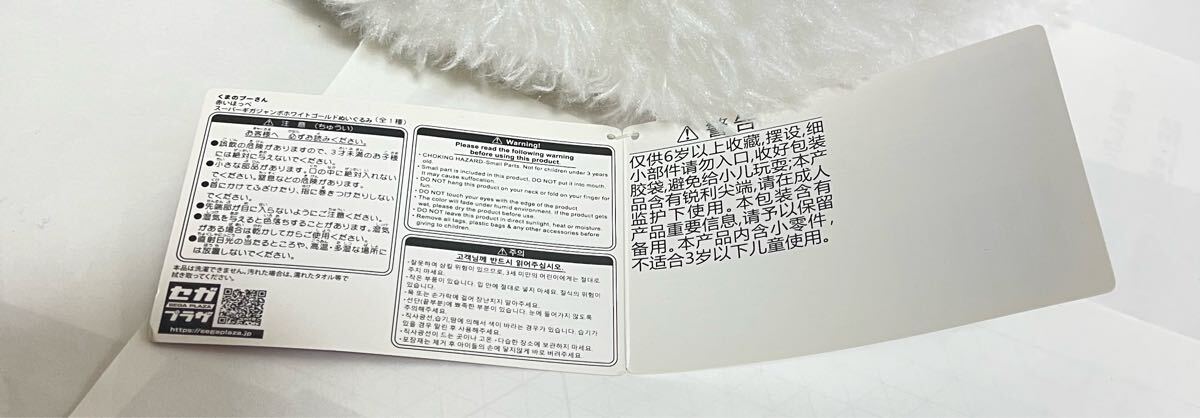 くまのプーさん
赤いほっぺ
スーパーギガジャンボホワイトゴールドぬいぐるみ(全1種)
⚠ 注意 (ちゅうい)
お客様へ 必ずお読みください。
●誤飲の危険がありますので、3才未満のお子様
には絶対に与えないでください。
●小さな部品があります。口の中に絶対入れない
でください。窒息などの危険があります。
●首にかけてふざけたり、指に巻きつけたりしない
でください。
●先端部が目に入らないようにご注意ください。
●湿気を与えると色落ちすることがあります。湿気
がある場合は乾かしてからご使用ください。
●直射日光の当たるところや、高温・多湿な場所に
は放置しないでください。
本品は洗濯できません。汚れた場合は、濡れたタオル等で
拭き取ってください。
セガ
SEGA PLAZA
プラザ
https://segaplaza.jp
⚠ Warning!
Please read the following warning
before using this product.
・CHOKING HAZARD-Small Parts. Not for children under 3 years
old.
・Small pars is included in this product. DO NOT put it into mouth.
It may cause suffocation.
・DO NOT hang this product on your neck or fold on your finger for
fun.
・DO NOT touch your eyes with the edge of the product
・The color will fade under humid environment. If the product gets
wet, please dry the product before use.
・DO NOT leave this product in direct sunlight, heat or moisture.
・Remove all tags, plastic bags & any other accessories before
giving to children.
⚠ 주의
고객님께 반드시 읽어주십시오.
・잘못하여 삼킬 위험이 있으므로, 3세 미만의 어린이에게는 절대로
주지 마세요.
・작은 부품이 있습니다. 입 안에 절대로 넣지 마세요. 질식의 위험이
있습니다.
・목 또는 손가락에 걸어 장난치지 말아주세요.
・선단(끝부분)에 뾰족한 부분이 있습니다. 눈에 들어가지 않도록
주의해주세요.
・직사광선,습기,땀에 의해서 색이 바라는 경우가 있습니다. 습기가
있을 경우 말린 후 사용해주세요.
・직사광선이 드는 곳이나 고온・다습한 장소에 보관하지 마세요.
・포장재는 제거 후 아이들의 손에 닿지않게 바로 버려주세요.
⚠ 警告
仅供6岁以上收藏,摆设,细
小部件请勿入口,收好包装
胶袋,避免给小儿玩耍;本产
品含有锐利尖端,请在成人
监护下使用。本包装含有
产品重要信息,请予以保留
备用。本产品内含小零件,
不适合3岁以下儿童使用。